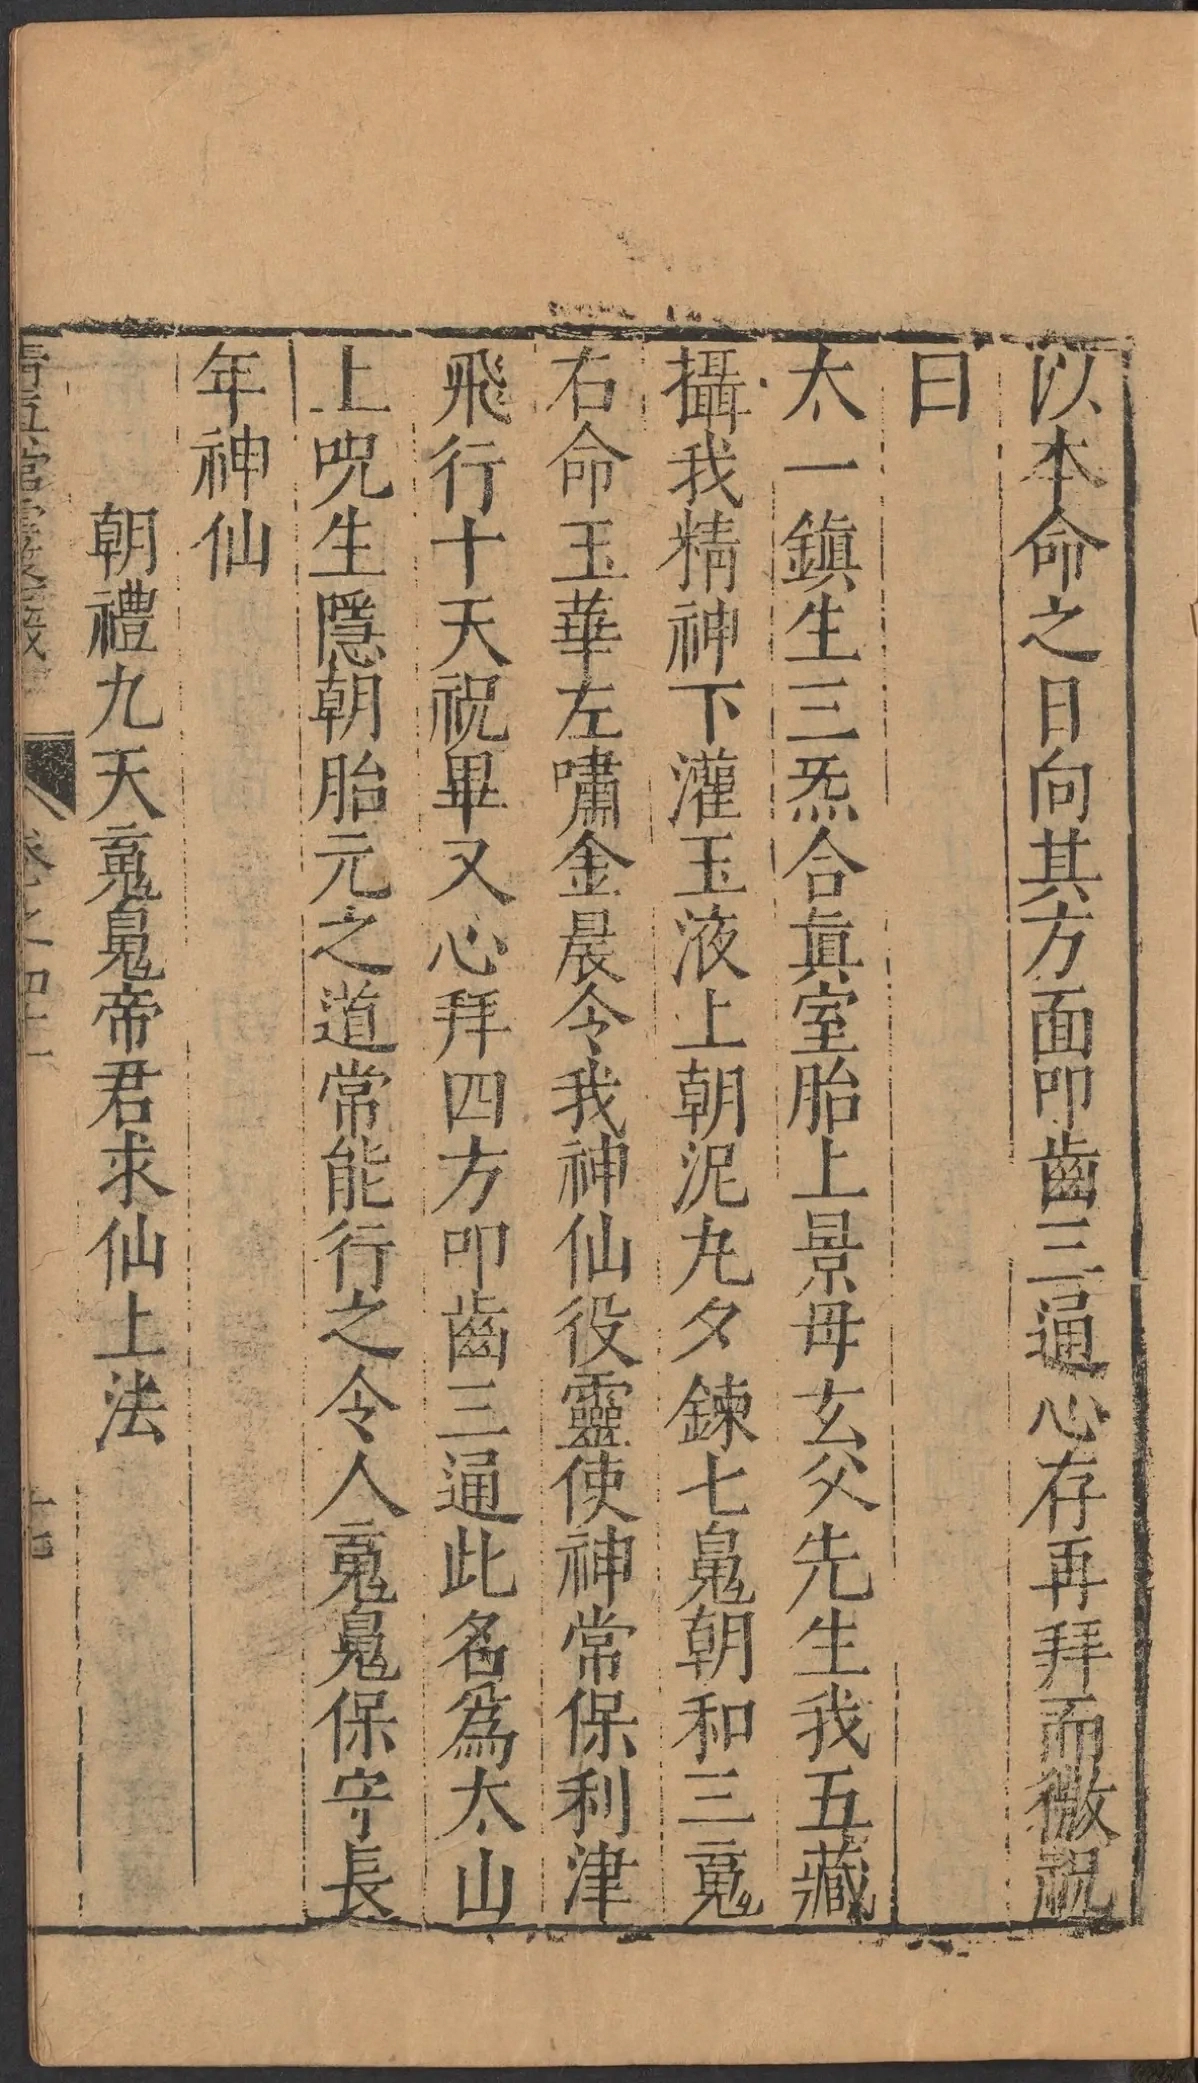 以本命之日向其方面叩齒三通心存再拜而微祝
曰
太一鎮生三炁合眞室胎上景母玄父先生我五藏
攝我精神下灌玉液上朝泥丸夕鍊七䰟朝和三䰟
右命玉華左嘯金晨令我神仙役靈使神常保利津
飛行十天祝畢又心拜四方叩齒三通此名爲太山
上呪生隱朝胎元之道常能行之令人䰟䰟保守長
年神仙
朝禮九天䰟䰟帝君求仙上法